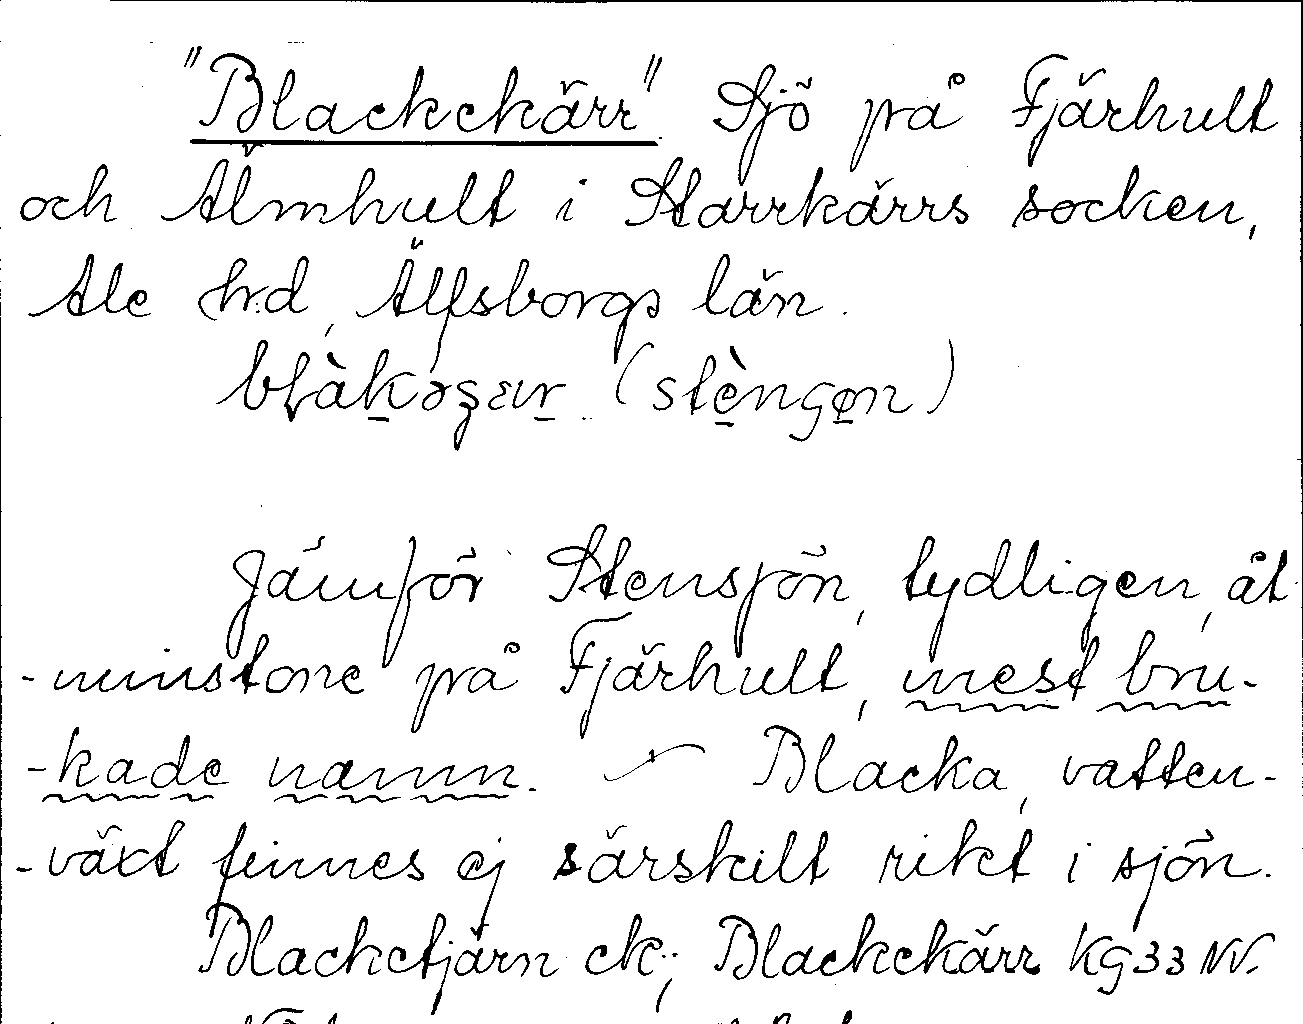 "Blackekärr" Sjö på Fjärhult
och Älmhult i Starrkärrs socken,
Ale hd, Älfsborgs län.
(stèngen)
Jämför Stensjön, tydligen, åt
-minstone på Fjärhult, mest bru-
-kade namn. — Blacka, vatten-
-växt finnes ej särskilt rikt i sjön.
Blacketjärn ek; Blackekärr KG33 NV.